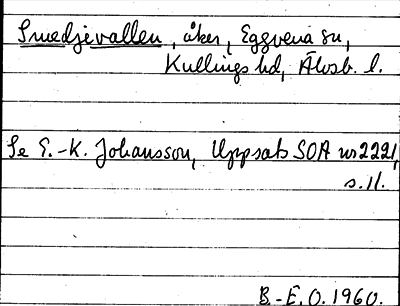 Smedjevallen, åker, Eggvena sn,
Kullings hd, Älvsb. l.
Se E.-K. Johansson, Uppsats SOA nr 2221,
s. 11.
B.-E. O. 1960.